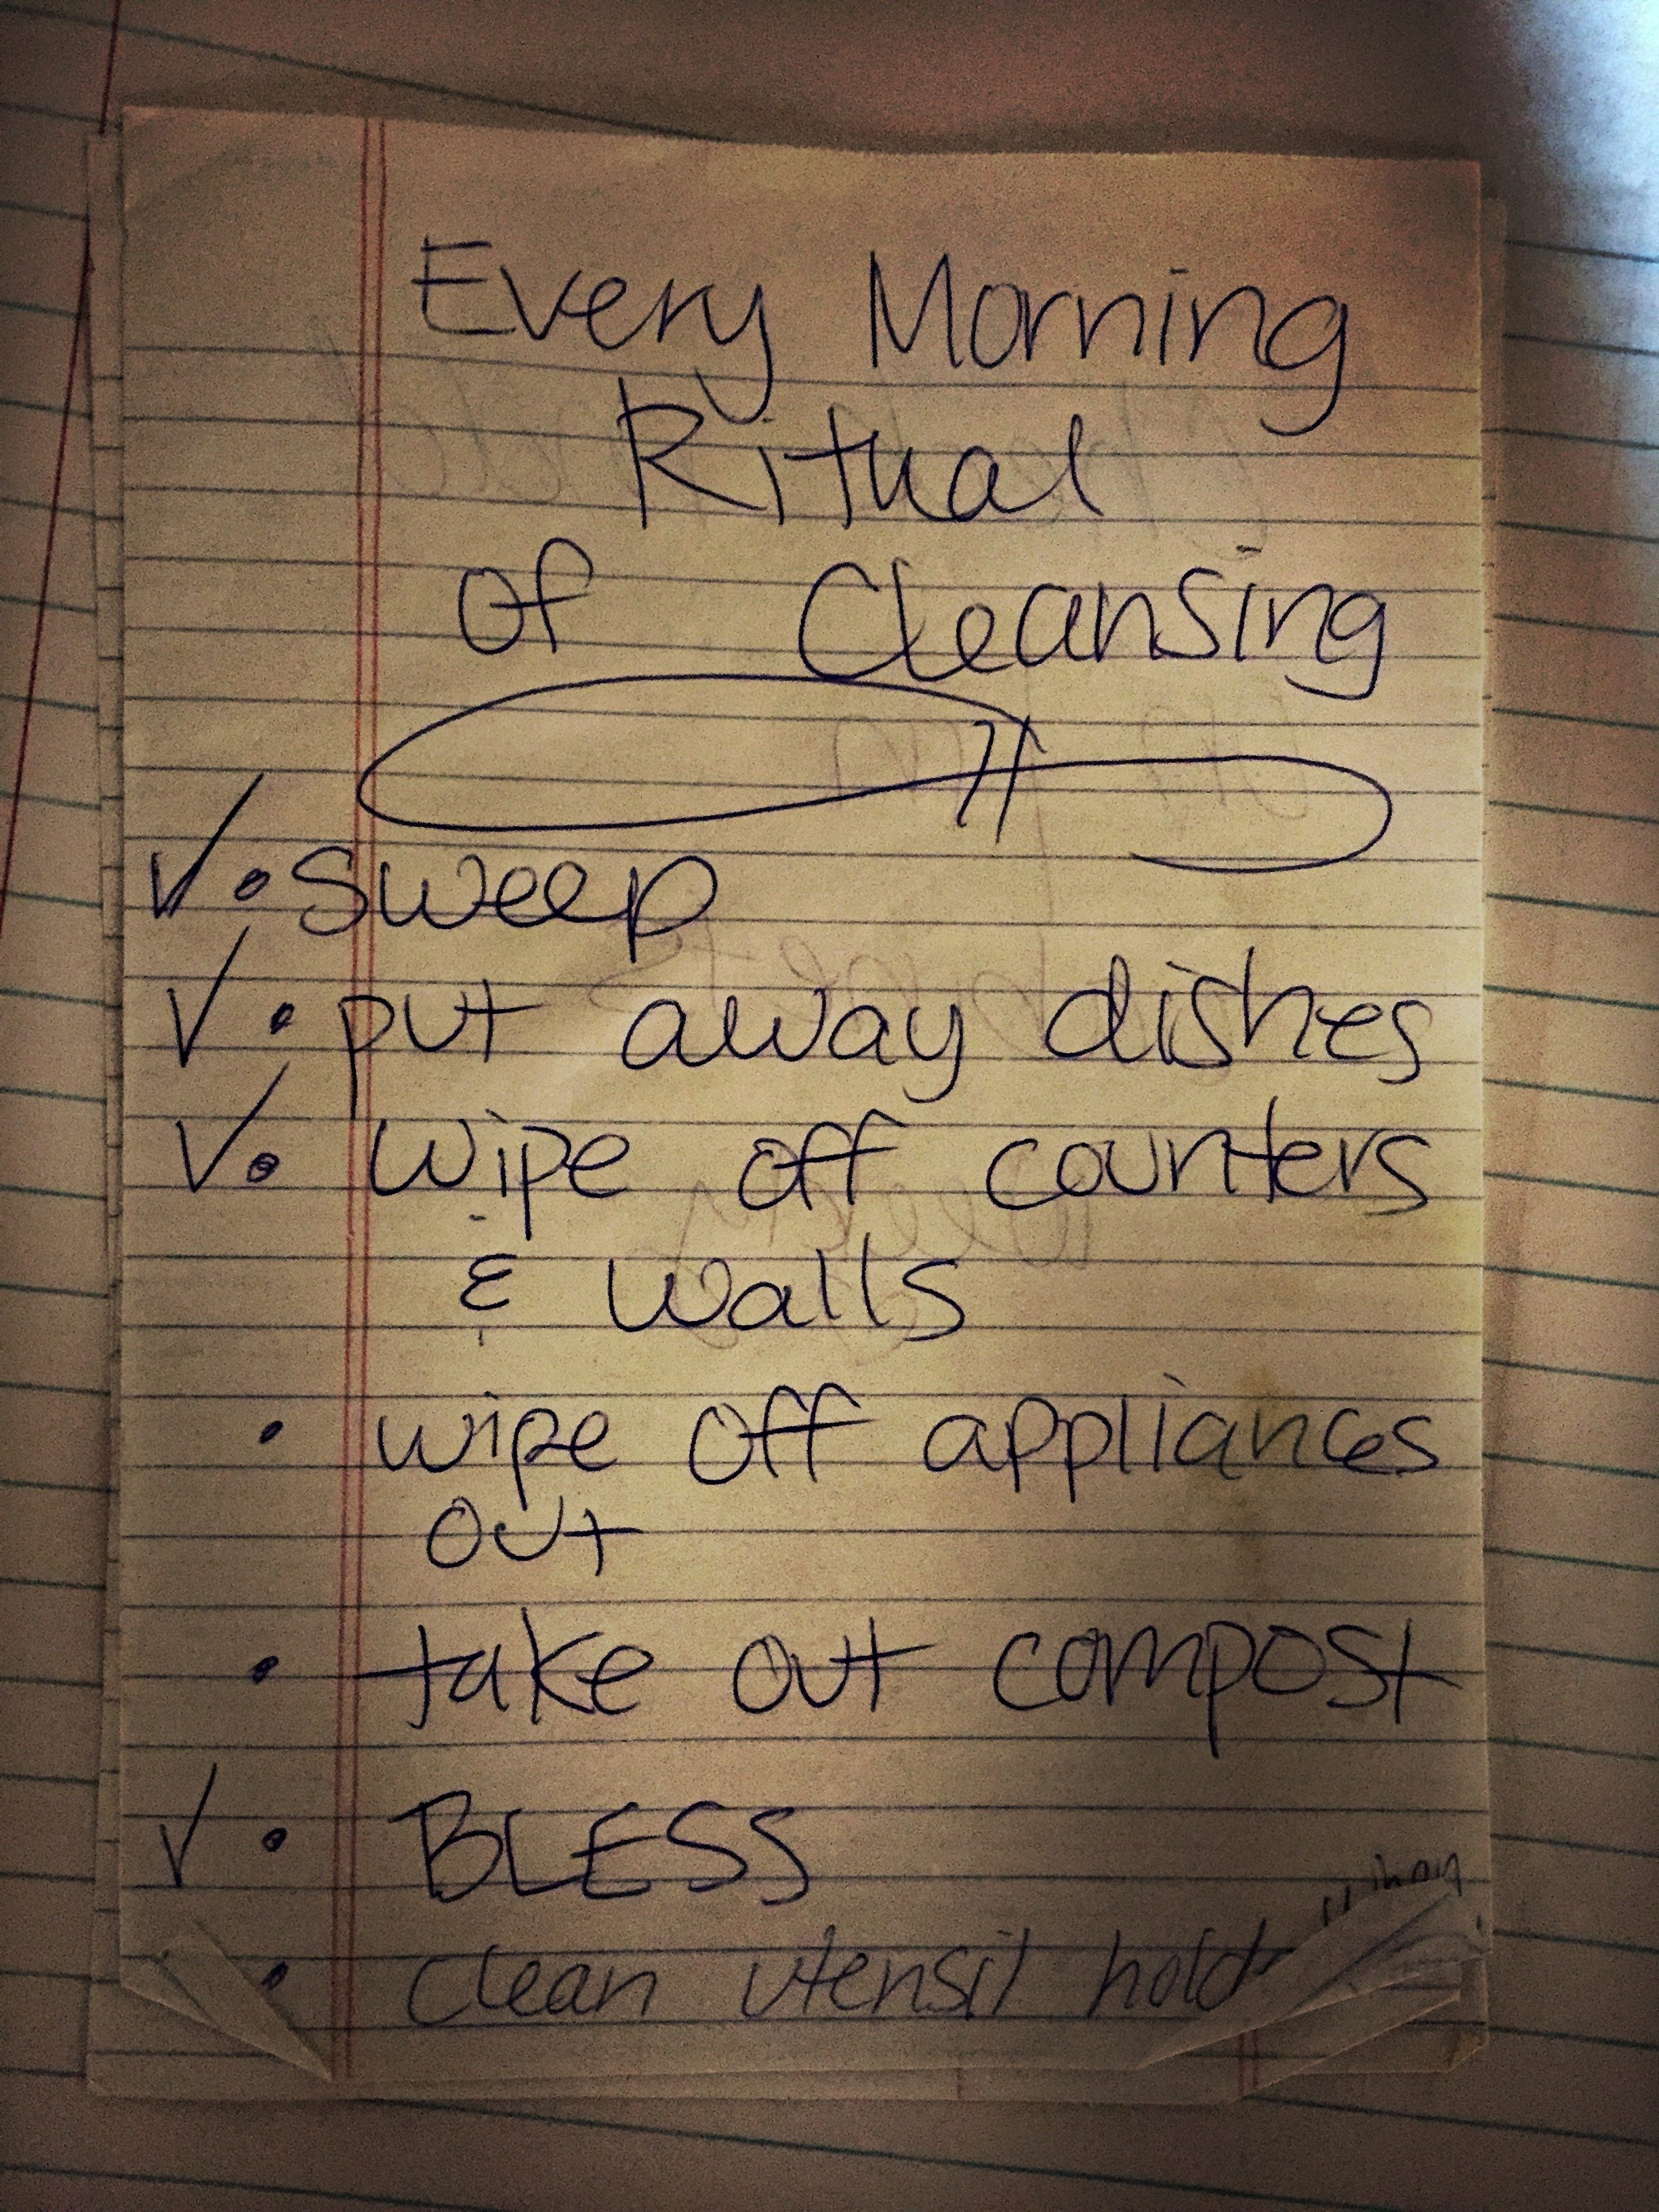 Every Morning
Ritual
of Cleansing
✓ • sweep
✓ • put away dishes
✓ • wipe off counters
& walls
• wipe off appliances
out
• take out compost
✓ • BLESS
• clean utensil